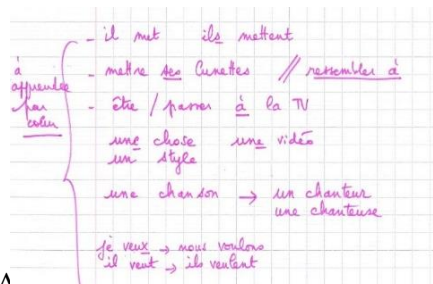 à apprendre par cœur
- il met ils mettent
- mettre ses lunettes // ressembler à
- être / passer à la TV
une chose une vidéo
un style
une chanson → un chanteur
une chanteuse
je veux → nous voulons
il veut → ils veulent